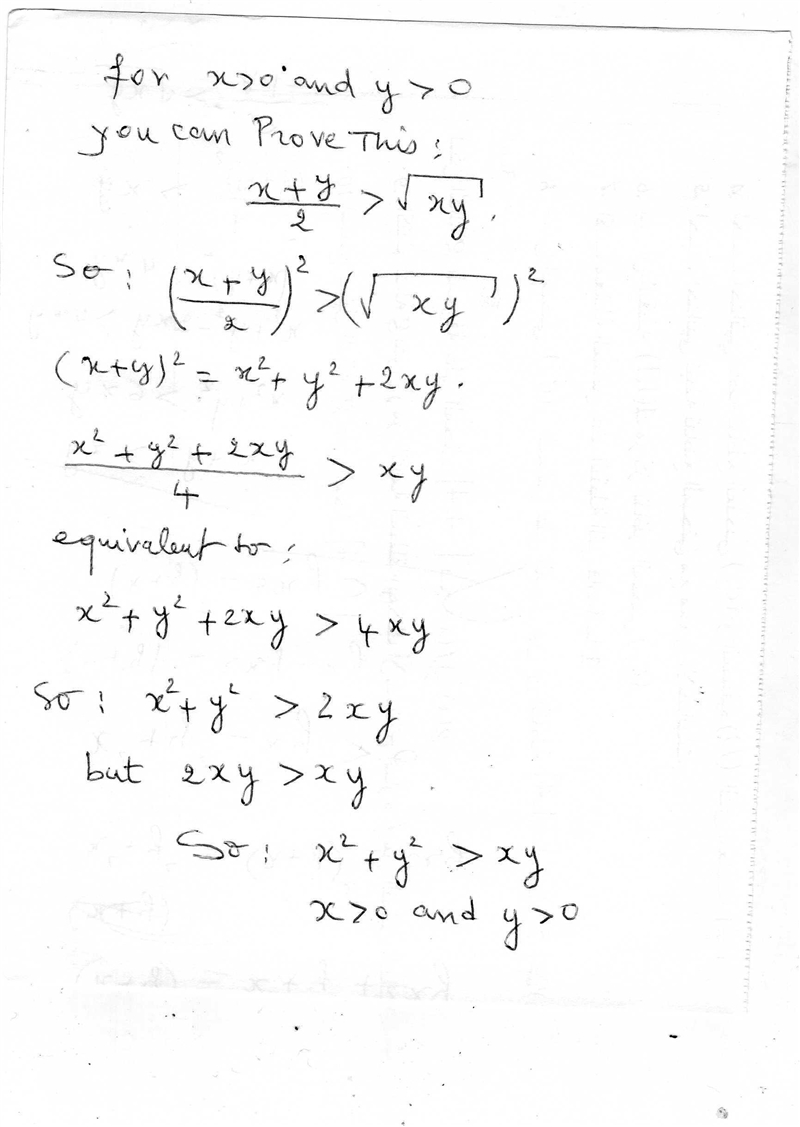 for x>0 and y > 0
you can Prove This:
x+y/2 > √xy.
So: (x+y/2)² > (√xy)²
(x+y)² = x² + y² + 2xy.
x² + y² + 2xy/4 > xy
equivalent to:
x² + y² + 2xy > 4xy
So: x² + y² > 2xy
but 2xy > xy
So: x² + y² > xy
x>0 and y>0